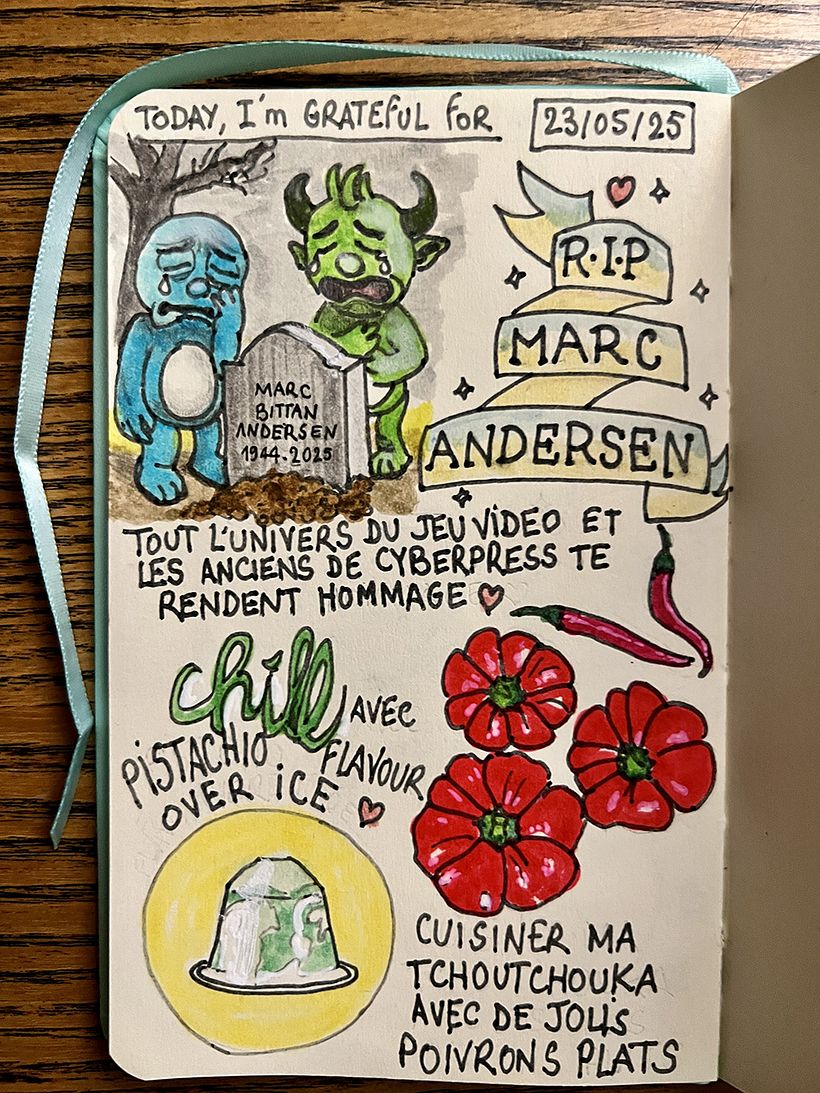 TODAY, I'm GRATEFUL FOR
23/05/25
R·I·P
MARC
ANDERSEN
MARC
BITTAN
ANDERSEN
1944.2025
TOUT L'UNIVERS DU JEU VIDEO ET
LES ANCIENS DE CYBERPRESS TE
RENDENT HOMMAGE
chill AVEC
PISTACHIO FLAVOUR
OVER ICE
CUISINER MA
TCHOUTCHOUKA
AVEC DE JOLIS
POIVRONS PLATS